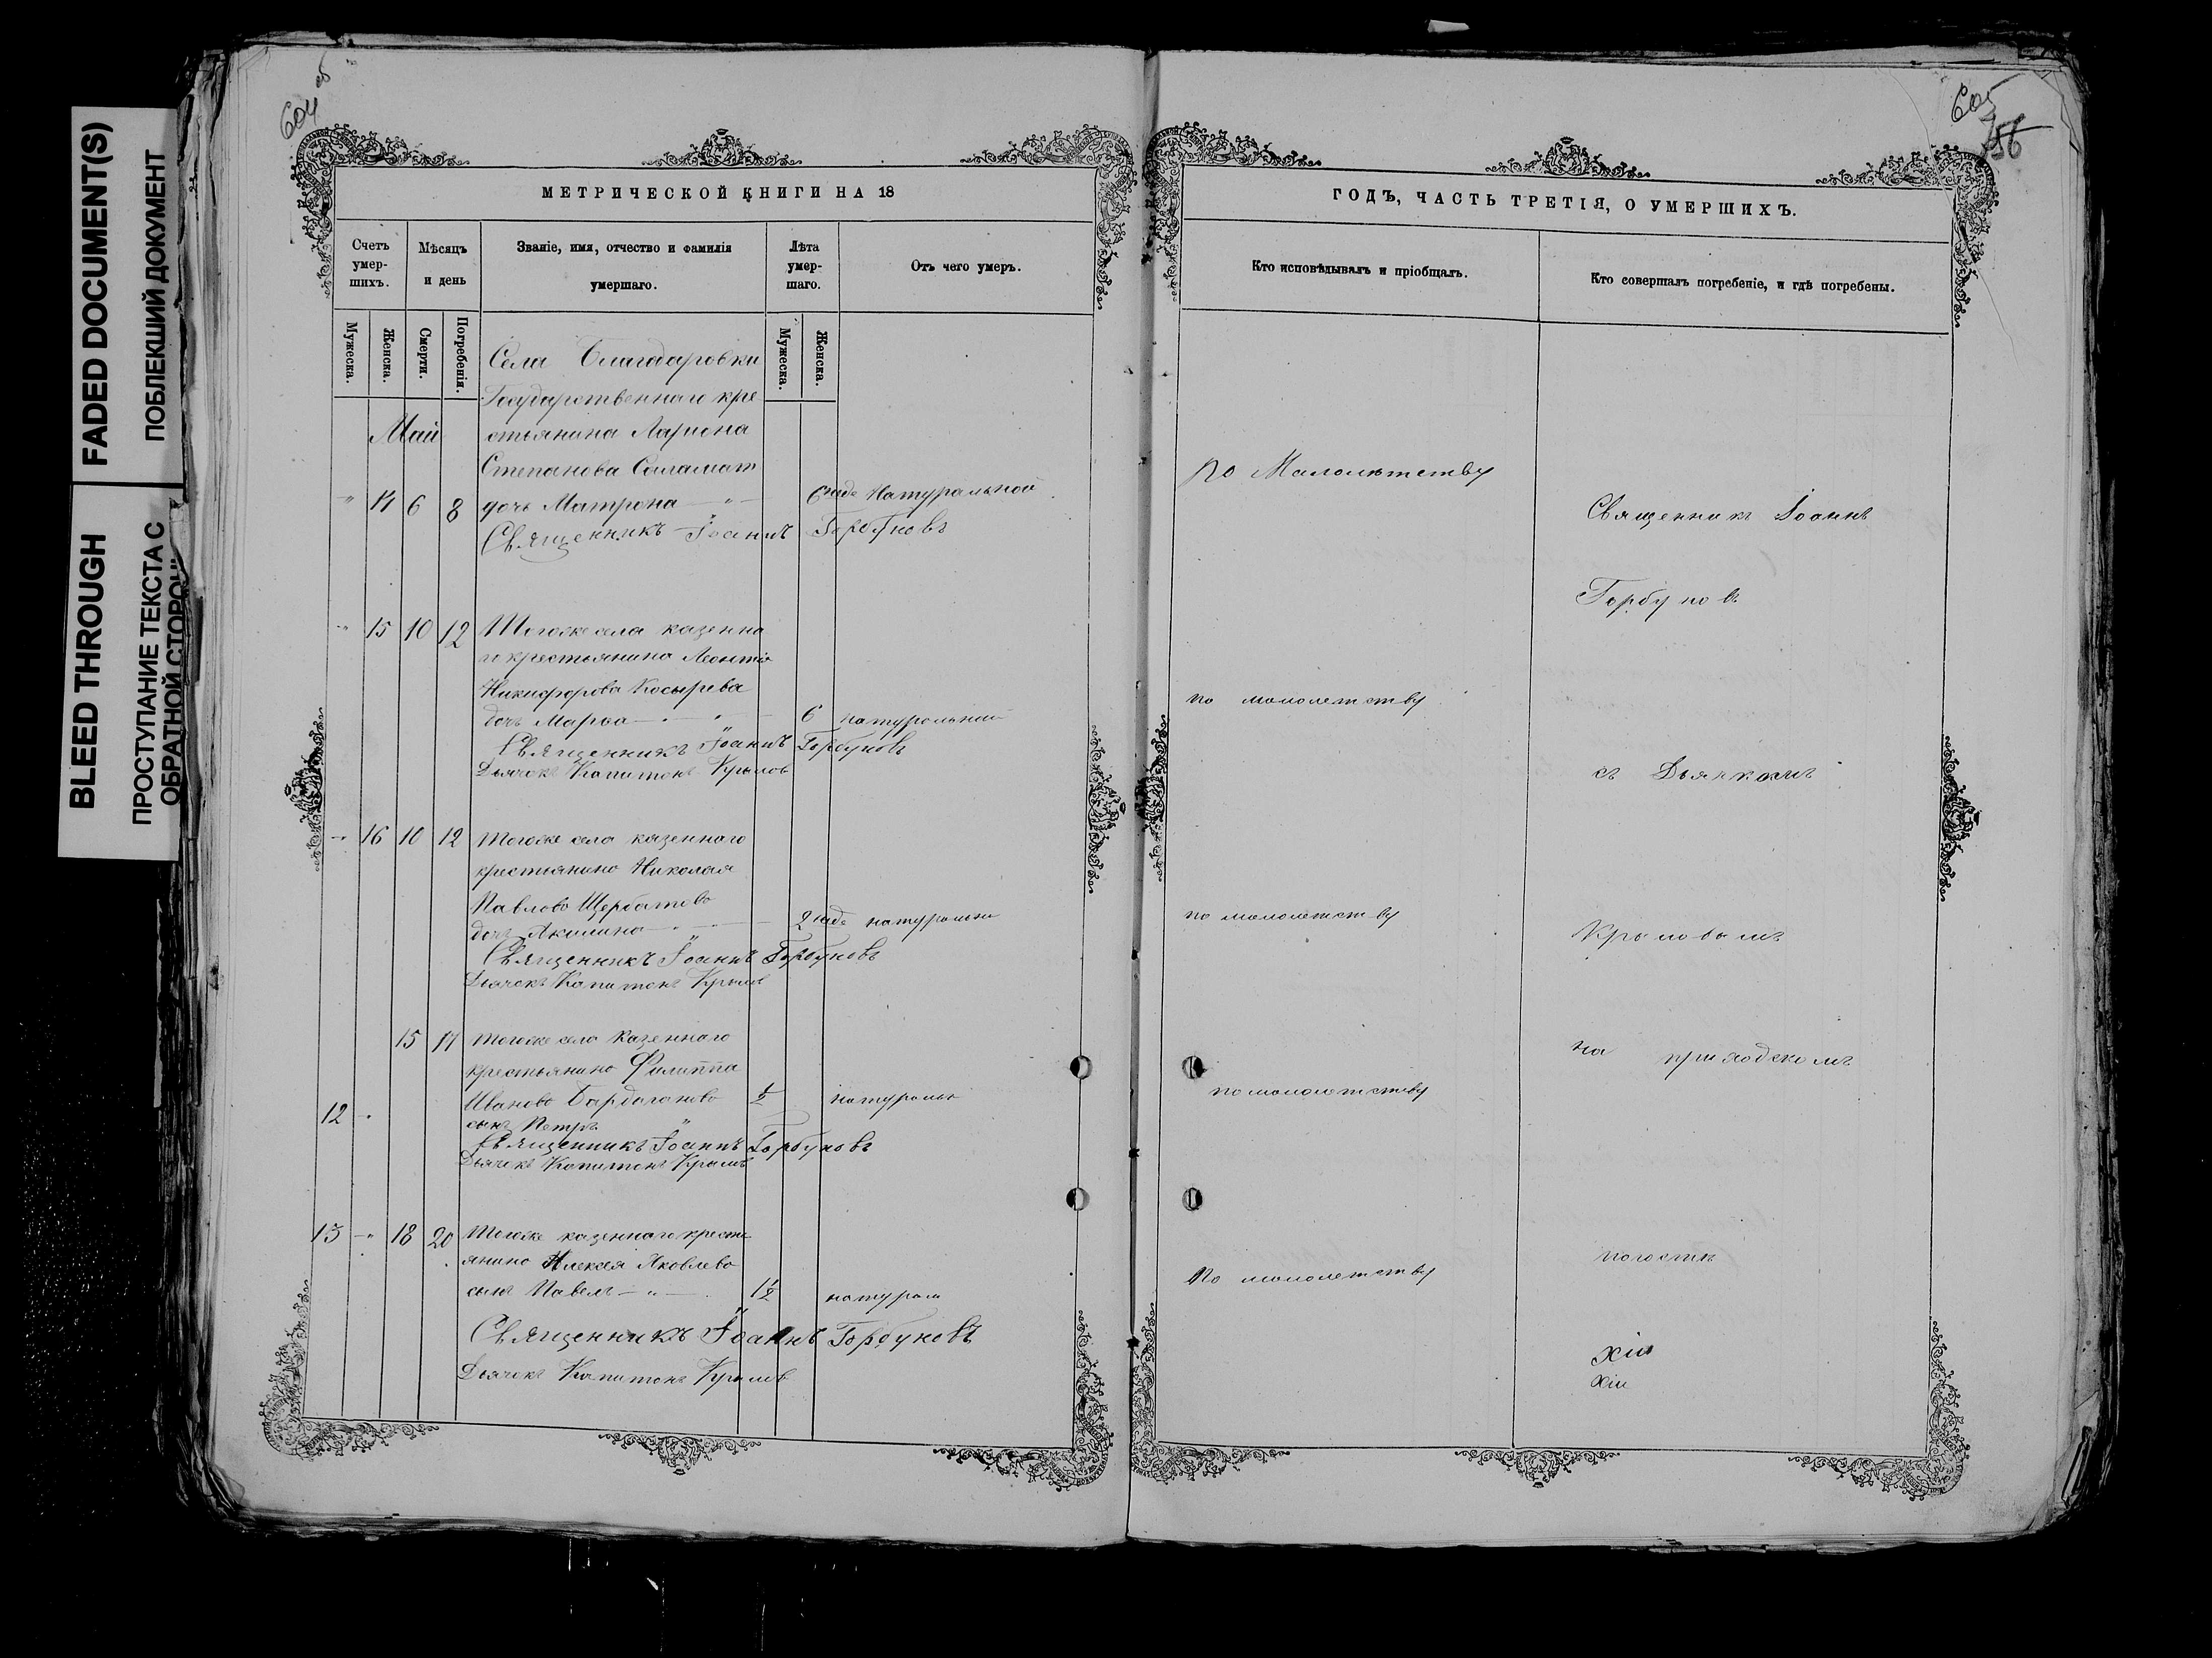 FADED DOCUMENT(S)
ПОБЛЕКШИЙ ДОКУМЕНТ
BLEED THROUGH
ПРОСТУПАНИЕ ТЕКСТА С
ОБРАТНОЙ СТОРОН
604
МЕТРИЧЕСКОЙ КНИГИ НА 18
Счетъ умер-шихъ.
Мѣсяцъ и день
Званіе, имя, отчество и фамилія умершаго.
Лѣта умер-шаго.
Отъ чего умеръ.
Мужеска.
Женска.
Смерти.
Погребенія.
Мужеска.
Женска.
Села Благодаровки
Государственнаго кре
Май стьянина Лариона
Степанова Саламат
" 14 6 8 дочь Матрона — " — 6 Натуральной
Священникъ Іоаннъ Горбуновъ
" 15 10 12 Тогоже села казенна
го крестьянина Леонтія
Никифорова Косырева
дочь Марѳа — " — 6 натуральной
Священникъ Іоаннъ Горбуновъ
Дьячекъ Капитонъ Крылов
" 16 10 12 Тогоже села казеннаго
крестьянина Николая
Павлова Щербатова
дочь Акилина — 2 года натурально
Священникъ Іоаннъ Горбуновъ
Дьячекъ Капитонъ Крылов
15 17 Тогоже села казеннаго
крестьянина Филиппа
Иванова 1/2 натуральн
12 " сынъ Петръ
Священникъ Іоаннъ Горбуновъ
Дьячекъ Капитонъ Крылов
13 " 18 20 Тогоже казеннаго кресть
янина Алексея Яковлева
сынъ Павелъ — " — 1 1/2 натурал
Священникъ Іоаннъ Горбуновъ
Дьячекъ Капитонъ Крылов
605
156
ГОДЪ, ЧАСТЬ ТРЕТІЯ, О УМЕРШИХЪ.
Кто исповѣдывалъ и пріобщалъ.
Кто совершалъ погребеніе, и гдѣ погребены.
по Малолѣтству
Священникъ Іоаннъ
Горбуновъ
по малолетству
съ Дьячкомъ
по малолетству
Крыловымъ
на приходскомъ
по малолетству
погостѣ
по малолетству